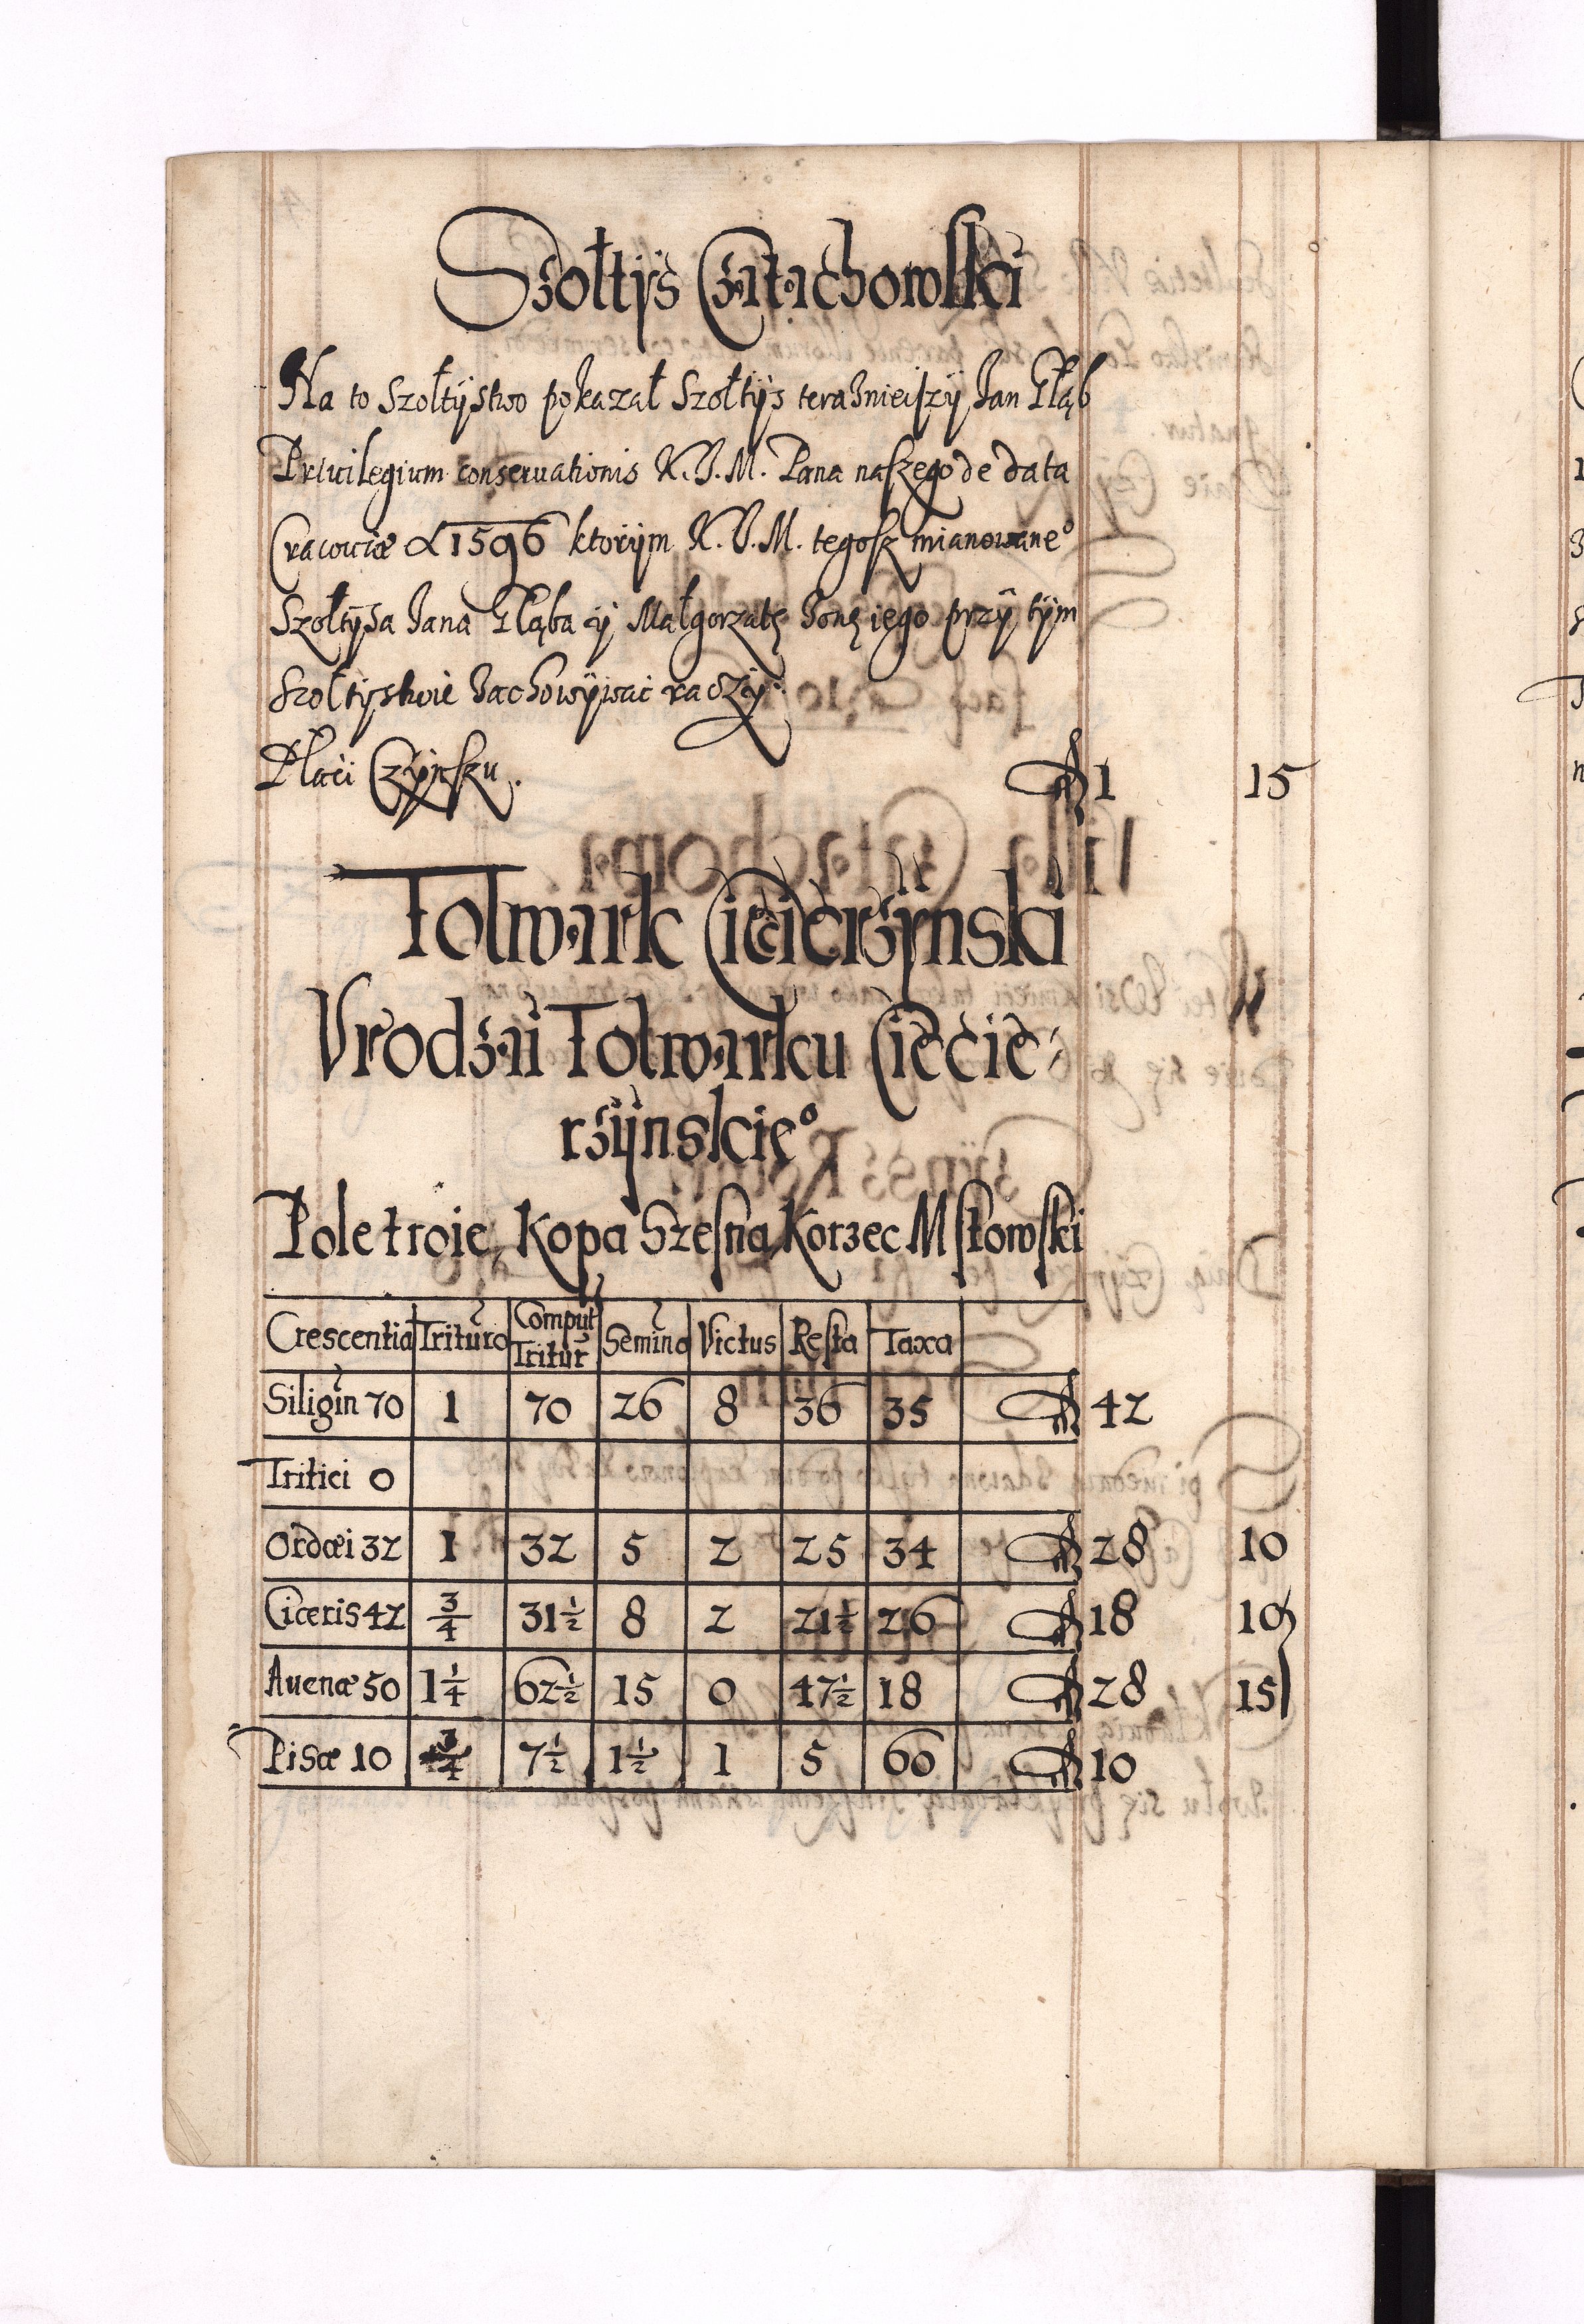 Szołtys Czatachowski
Na to Szołtystwo pokazał Szołtys teraznieiszy Jan Głąb
Priuilegium conseruationis K. J. M. Pana naszego de data
Cracouiæ A 1596 ktorym K. J. M. tegosz mianowane°
Szołtysa Jana Głąba y Małgorzatę żonę iego przy tym
Szołtystwie zachowywać raczy.
Płaci Czynszu. fl 1 15
Folwark Ciecierzynski
Vrodzai Folwarku Ciecie-
rzynskie°
Pole troie, Kopa Szesna, Korzec Mstowski
Crescentia Trituro Comput Tritur Semina Victus Resta Taxa
Siligin 70 1 70 26 8 36 35 fl 42
Tritici 0
Ordæi 32 1 32 5 2 25 34 fl 28 10
Ciceris 42 3/4 31 1/2 8 2 21 1/2 26 fl 18 10
Auenæ 50 1 1/4 62 1/2 15 0 47 1/2 18 fl 28 15
Pisæ 10 3/4 7 1/2 1 1/2 1 5 60 fl 10